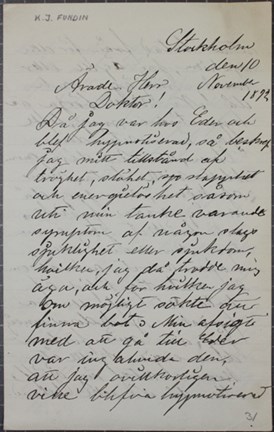 K. J. FURDIN
Stockholm
den 10
November
Ärade Herr 189
Doktor!
Då jag var hos Eder och
blef hypnotiserad, så beskref
jag mitt tillstånd af
tröghet, slöhet, slapphet
och energilöshet såsom
uti min tanke varande
symptom af någon slags
sjuklighet eller sjukdom,
hvilken jag då trodde mig
äga, och för hvilken jag
om möjligt sökte att
finna bot. Min afsigt
med att gå till Eder
var den,
att jag ovillkorligen
ville blifva hypnotiserad